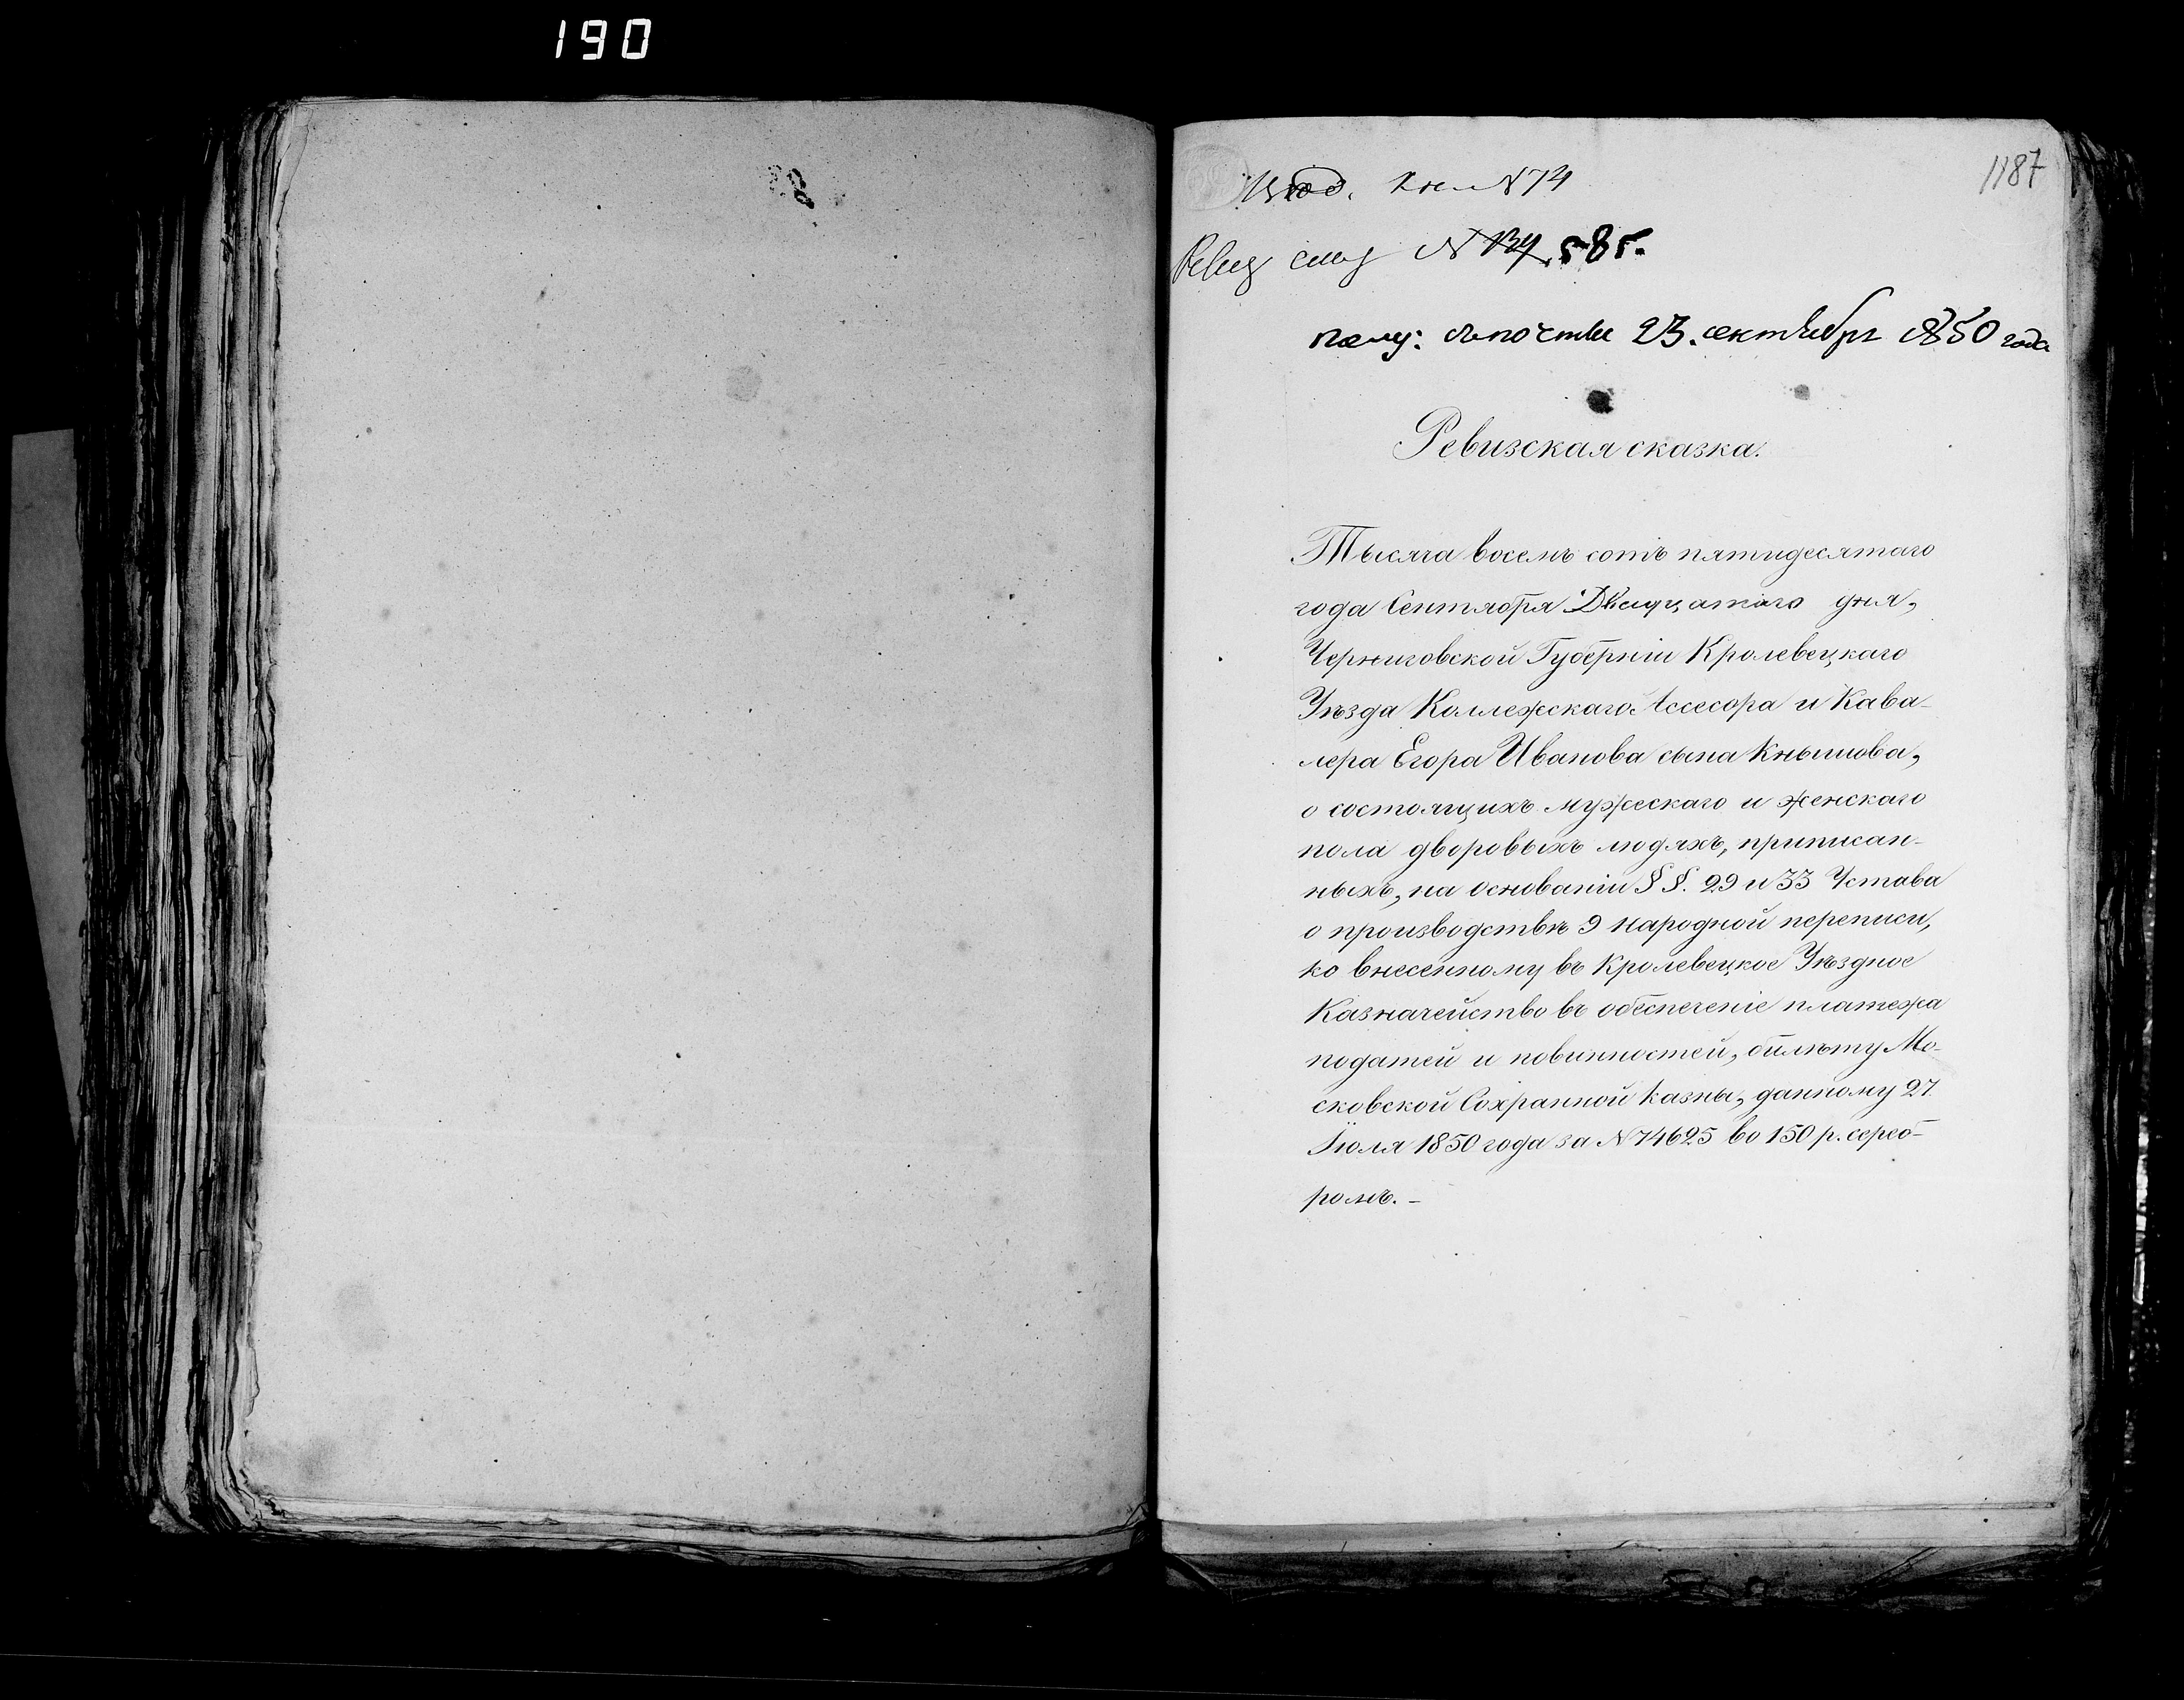 190
1187
Вход. Кни N 74
Ревиз сказ N 134 585.
полу: с почты 23. сентября 1850 года
Ревизская сказка.
Тысяча восемь сотъ пятидесятаго
года Сентября Двадцатаго дня,
Черниговской Губерніи Кролевецкаго
Уѣзда Коллежскаго Ассесора и Кава-
лера Егора Иванова сына Кнышова,
о состоящихъ мужескаго и женскаго
пола дворовыхъ людяхъ, приписан-
ныхъ, на основаніи §§. 29 и 33 Устава
о производствѣ 9 народной переписи,
ко внесенному въ Кролевецкое Уѣздное
Казначейство въ обеспеченіе платежа
податей и повинностей, билѣту Мо-
сковской Сохранной казны, данному 27
Іюля 1850 года за N 74625 во 150 р. сереб-
ромъ. -